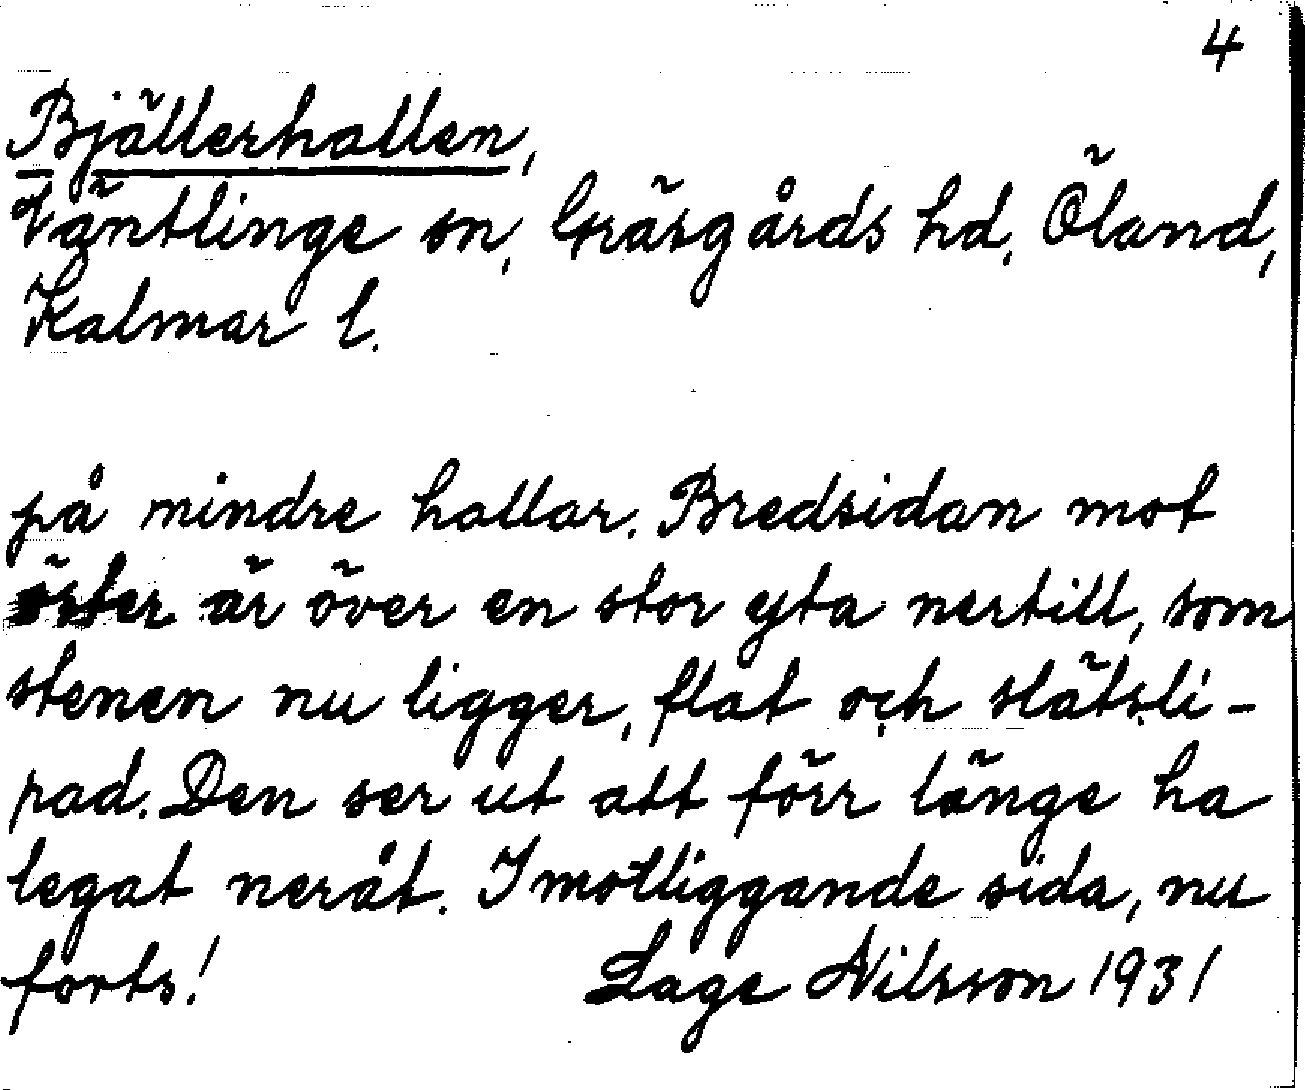 4
Bjällerhallen,
Väntlinge sn, Gräsgårds hd, Öland,
Kalmar l.
på mindre hallar. Bredsidan mot
öster är över en stor yta nertill, som
stenen nu ligger, flat och slätsli-
pad. Den ser ut att förr länge ha
legat neråt. I motliggande sida, nu
forts! Lage Nilsson 1931